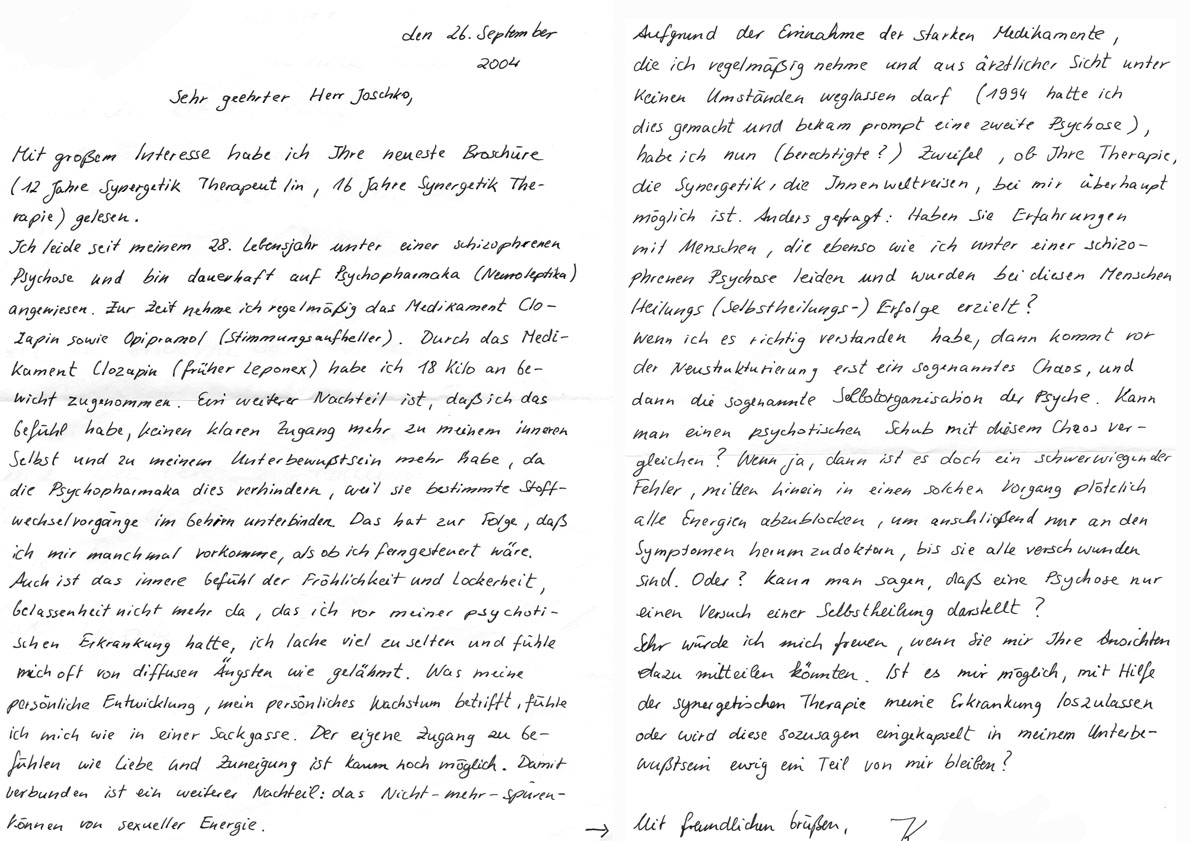 den 26. September
2004
Sehr geehrter Herr Joschko,
Mit großem Interesse habe ich Ihre neueste Broschüre
(12 Jahre Synergetik Therapeut/in, 16 Jahre Synergetik The-
rapie) gelesen.
Ich leide seit meinem 28. Lebensjahr unter einer schizophrenen
Psychose und bin dauerhaft auf Psychopharmaka (Neuroleptika)
angewiesen. Zur Zeit nehme ich regelmäßig das Medikament Clo-
zapin sowie Opipramol (Stimmungsaufheller). Durch das Medi-
kament Clozapin (früher Leponex) habe ich 18 Kilo an Ge-
wicht zugenommen. Ein weiterer Nachteil ist, daß ich das
Gefühl habe, keinen klaren Zugang mehr zu meinem inneren
Selbst und zu meinem Unterbewußtsein mehr habe, da
die Psychopharmaka dies verhindern, weil sie bestimmte Stoff-
wechselvorgänge im Gehirn unterbinden. Das hat zur Folge, daß
ich mir manchmal vorkomme, als ob ich ferngesteuert wäre.
Auch ist das innere Gefühl der Fröhlichkeit und Lockerheit,
Gelassenheit nicht mehr da, das ich vor meiner psychoti-
schen Erkrankung hatte, ich lache viel zu selten und fühle
mich oft von diffusen Ängsten wie gelähmt. Was meine
persönliche Entwicklung, mein persönliches Wachstum betrifft, fühle
ich mich wie in einer Sackgasse. Der eigene Zugang zu Ge-
fühlen wie Liebe und Zuneigung ist kaum noch möglich. Damit
verbunden ist ein weiterer Nachteil: das Nicht-mehr-spüren-
können von sexueller Energie.
→
Aufgrund der Einnahme der starken Medikamente,
die ich regelmäßig nehme und aus ärztlicher Sicht unter
keinen Umständen weglassen darf (1994 hatte ich
dies gemacht und bekam prompt eine zweite Psychose),
habe ich nun (berechtigte?) Zweifel, ob Ihre Therapie,
die Synergetik, die Innenweltreisen, bei mir überhaupt
möglich ist. Anders gefragt: Haben Sie Erfahrungen
mit Menschen, die ebenso wie ich unter einer schizo-
phrenen Psychose leiden und wurden bei diesen Menschen
Heilungs (Selbstheilungs-) Erfolge erzielt?
Wenn ich es richtig verstanden habe, dann kommt vor
der Neustrukturierung erst ein sogenanntes Chaos, und
dann die sogenannte Selbstorganisation der Psyche. Kann
man einen psychotischen Schub mit diesem Chaos ver-
gleichen? Wenn ja, dann ist es doch ein schwerwiegender
Fehler, mitten hinein in einen solchen Vorgang plötzlich
alle Energien abzublocken, um anschließend nur an den
Symptomen herumzudoktorn, bis sie alle verschwunden
sind. Oder? Kann man sagen, daß eine Psychose nur
einen Versuch einer Selbstheilung darstellt?
Sehr würde ich mich freuen, wenn Sie mir Ihre Ansichten
dazu mitteilen könnten. Ist es mir möglich, mit Hilfe
der synergetischen Therapie meine Erkrankung loszulassen
oder wird diese sozusagen eingekapselt in meinem Unterbe-
wußtsein ewig ein Teil von mir bleiben?
Mit freundlichen Grüßen,